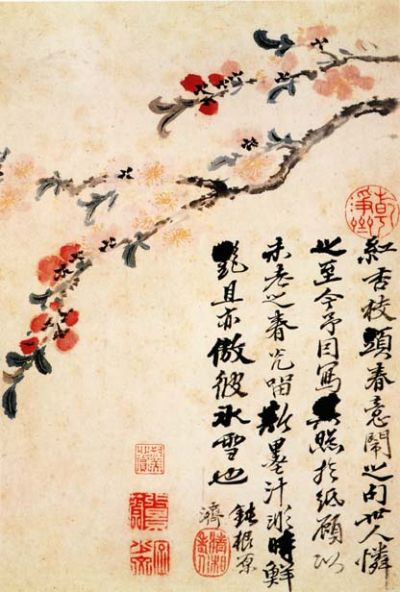 紅杏枝頭春意鬧之句世人憐
之至今予因寫其照於紙願以
未老之春光留墨汁時鮮
艷且亦傲彼冰雪也
鈍根原
濟